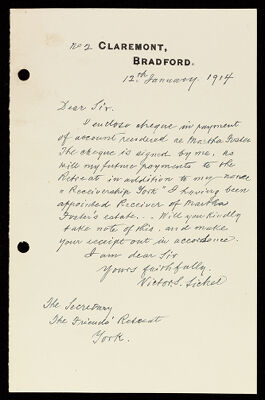 No 2 CLAREMONT,
BRADFORD.
12th January 1914
Dear Sir.
I enclose cheque in payment
of account rendered re Martha Foster
The cheque is signed by me, as
will my future payments to the
Retreat in addition to my name
"Receivership York" I having been
appointed Receiver of Martha
Foster's estate. . . Will you kindly
take note of this, and make
your receipt out in accordance.
I am dear Sir
Yours faithfully.
Victor S. Sichel
The Secretary
The Friends' Retreat
York.